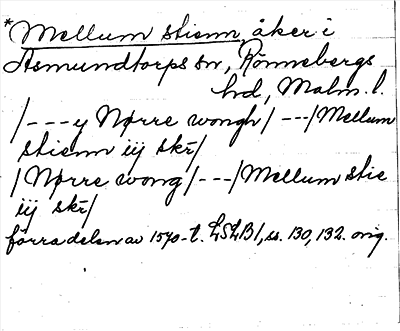 *Mellum stienn, åker i
Asmundtorps sn, Rönnebergs
hd, Malm. l.
/---y Nørre wongh/---/Mellum
stienn iij skr/
/Nørre wong/---/Mellum stie
iij skr/
förra delen av 1570-t. LSLB1, ss. 130, 132. orig.